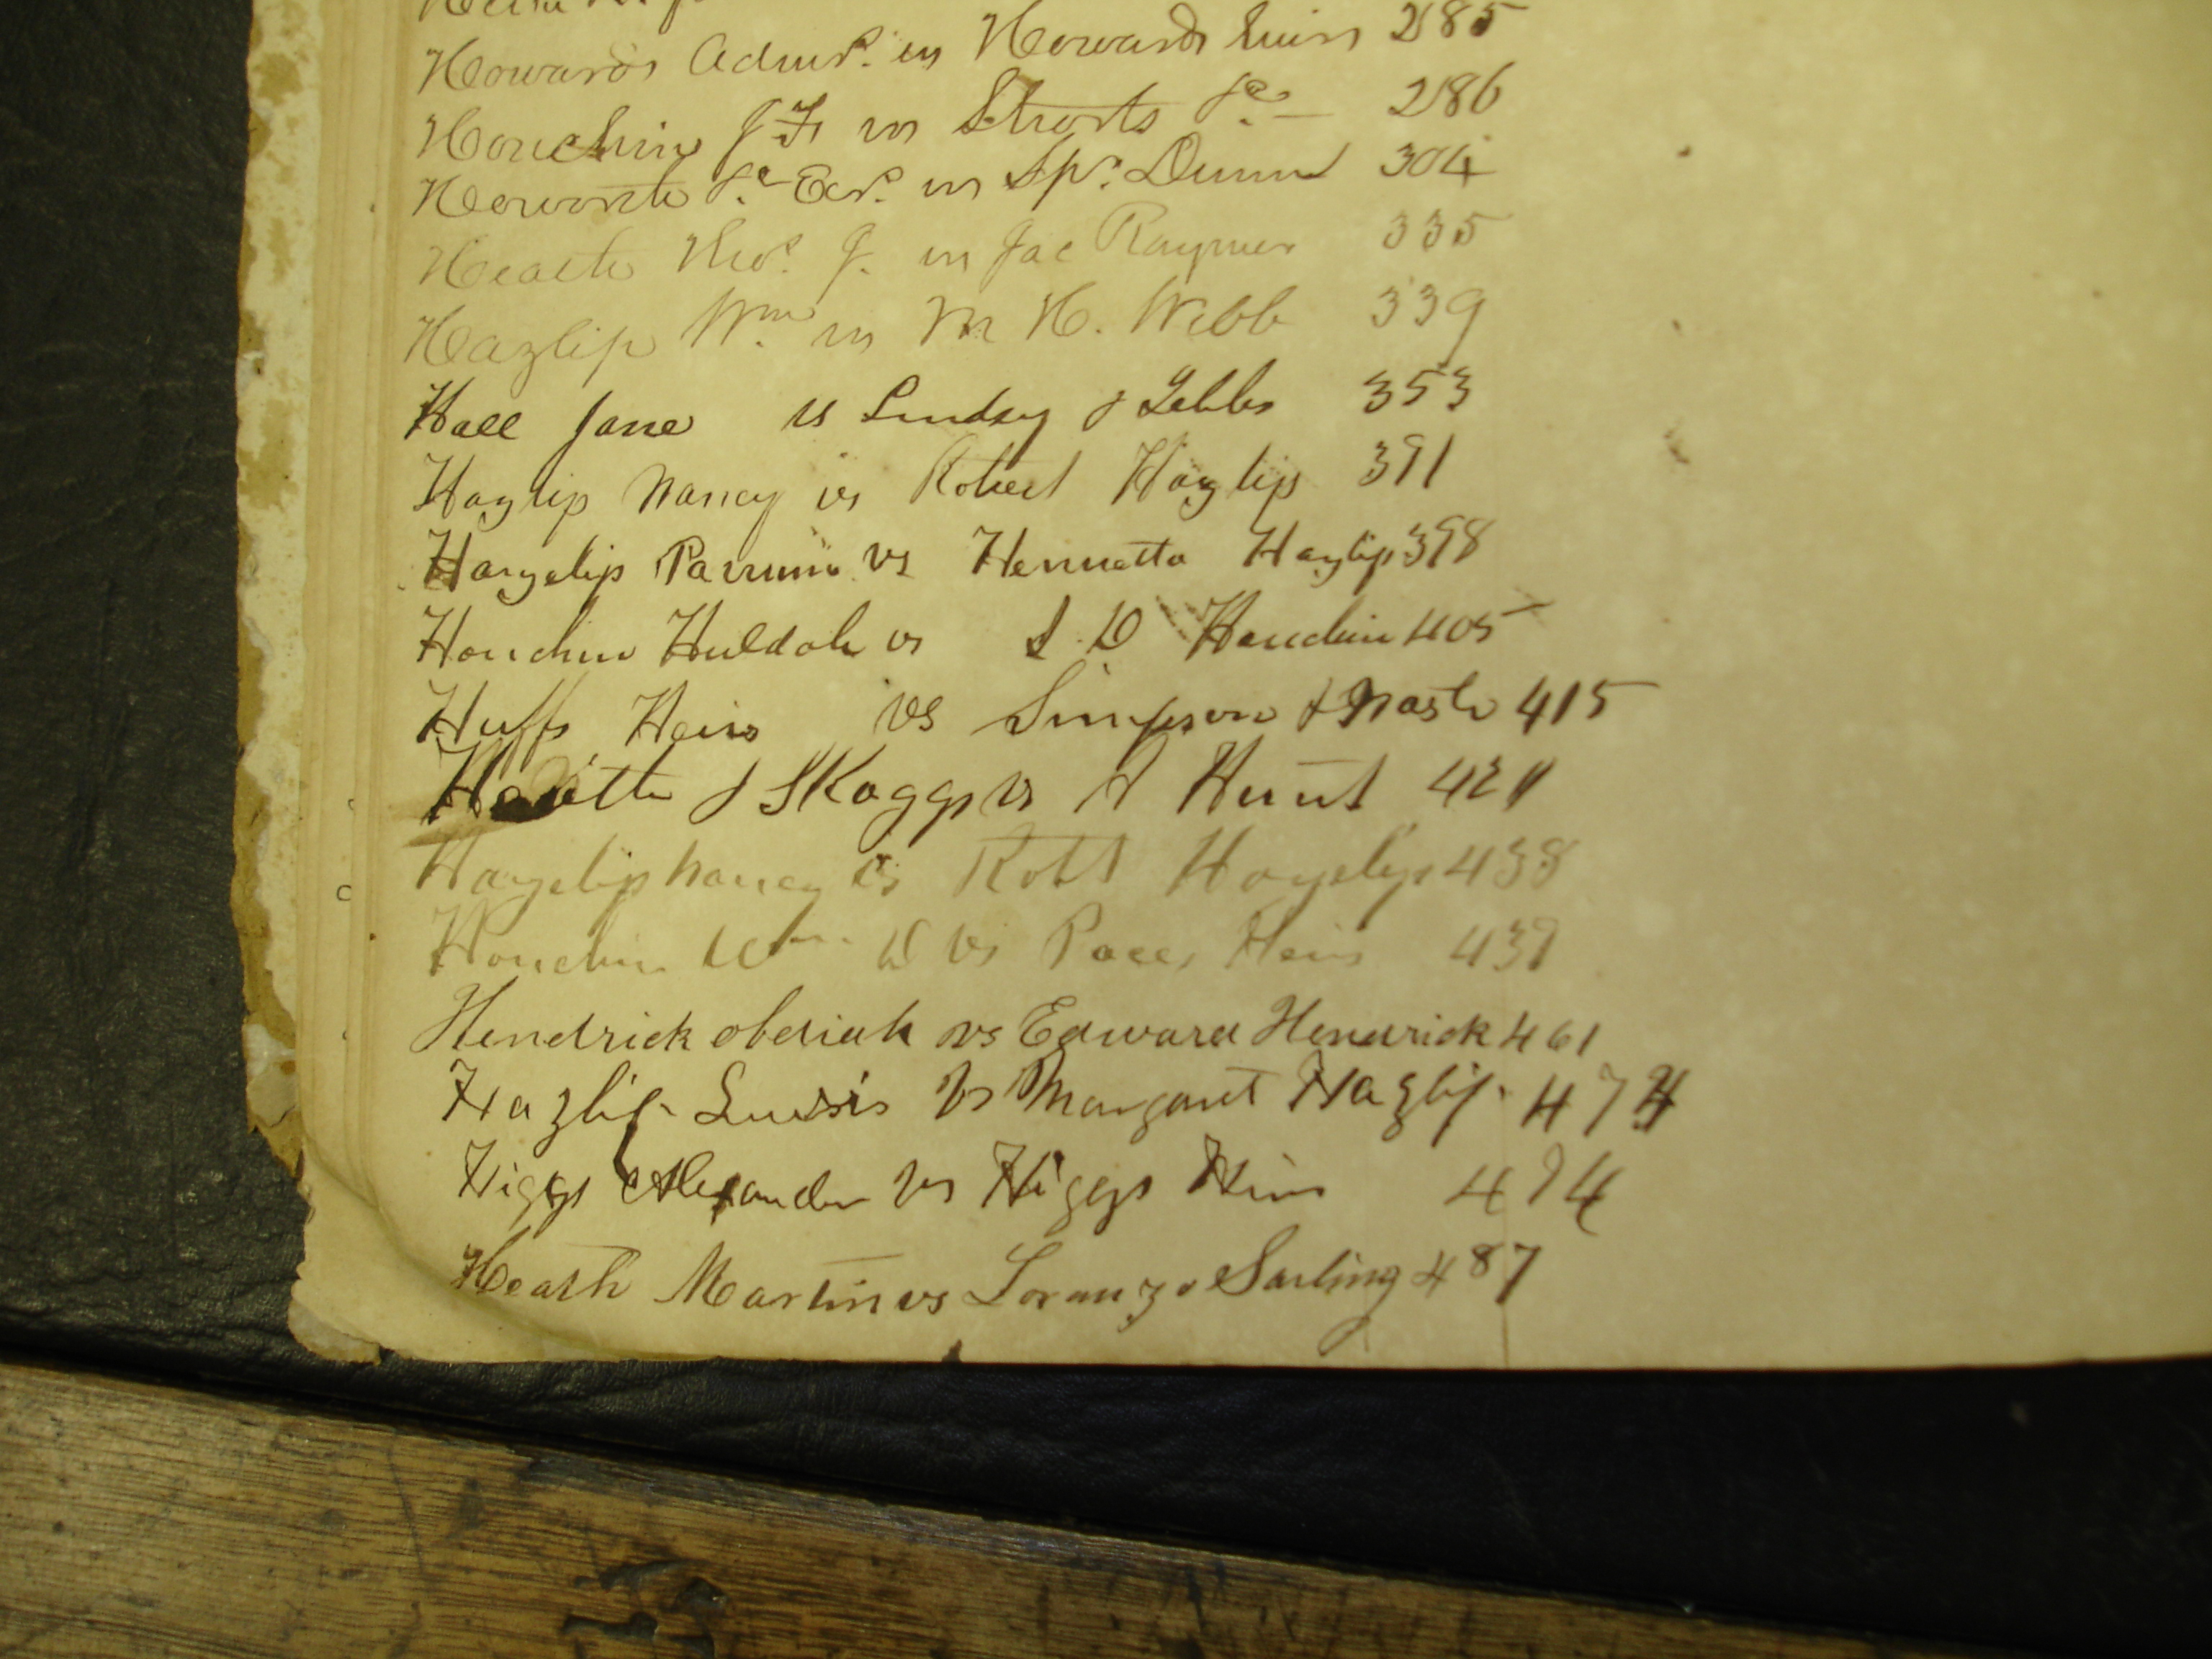 Howards Admr. vs Howards heirs 285
Houchin J. F. vs Shorts &c. — 286
Howorth &c. Exr. vs Sp. Dunn 304
Heath Thos. J. vs Jac Raymer 335
Hazlip Wm. vs M H. Webb 339
Hall Jane vs Lindsey & 353
Hazlip Nancy vs Robert Hazlip 391
Hazelip vs Henrietta Hazlip 398
Houchin Huldah vs Houchin 405
Huffs Heirs vs Simpson & Nash 415
& Skaggs vs A Hunt
Hazelip Nancy vs Robt Hazelip 438
Houchin Wm. D vs Paces Heirs 439
Hendrick obediah vs Edward Hendrick 461
Hazlip vs Margaret Hazlip 474
Higgs Alexander vs Higgs Heirs 474
Heath Martin vs Loranzo Sarling 487